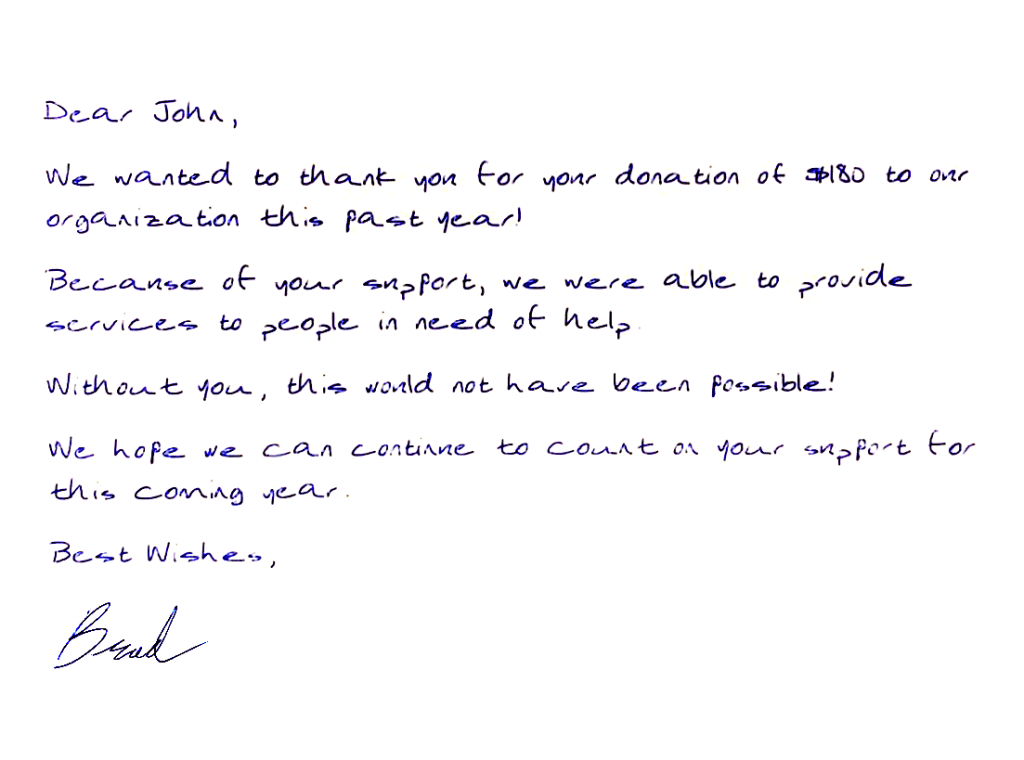 Dear John,
We wanted to thank you for your donation of $180 to our
organization this past year!
Because of your support, we were able to provide
services to people in need of help.
Without you, this would not have been possible!
We hope we can continue to count on your support for
this coming year.
Best Wishes,
Brad